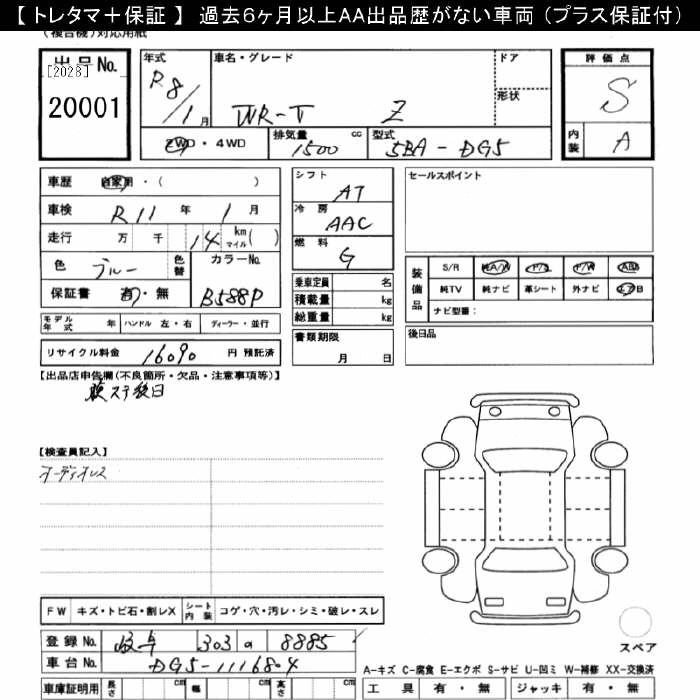 【 トレタマ＋保証 】 過去６ヶ月以上ＡＡ出品歴がない車両（プラス保証付）
(複合機)対応用紙
出品No.
[2028]
20001
年式
R8/1月
車名・グレード
WR-V Z
ドア
形状
評価点
S
内装
A
2WD ・ 4WD
排気量
1500 cc
型式
5BA - DG5
車歴 自家用 ・ ( )
車検 R11 年 1 月
走行 万 千 14 km マイル ( )
色 ブルー 色替
カラーNo.
B588P
保証書 有 ・ 無
モデル年式 年 ハンドル 左 ・ 右 ディーラー ・ 並行
リサイクル料金 16090 円 預託済
シフト
AT
冷房
AAC
燃料
G
乗車定員 名
積載量 kg
総重量 kg
書類期限
月 日
セールスポイント
装備品
S/R 純A/W P/S P/W ABS
純TV 純ナビ 革シート 外ナビ エアB
ナビ型番：
後日品
【出品店申告欄(不良箇所・欠品・注意事項等)】
ステ後日
【検査員記入】
オーディオレス
FW キズ・トビ石・割レX シート内装 コゲ・穴・汚レ・シミ・破レ・スレ
登録No. 岐阜 303 8885
車台No. DG5-1116804
車庫証明用 長さ cm 幅 cm 高さ cm
スペア
A-キズ C-腐食 E-エクボ S-サビ U-凹ミ W-補修 XX-交換済
工具 有 ・ 無 ジャッキ 有 ・ 無